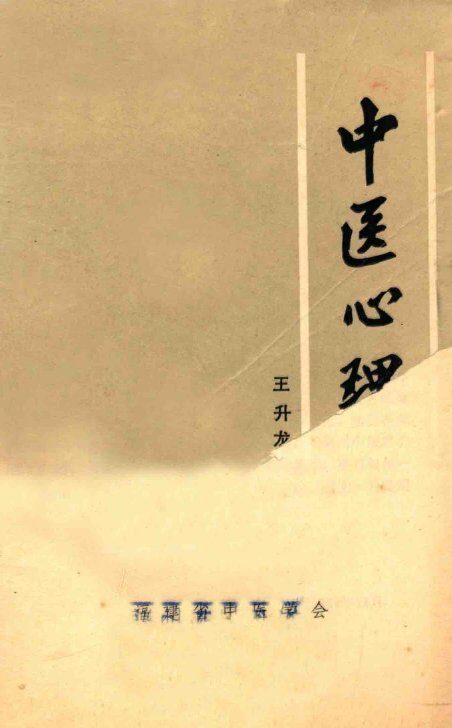 中医心理
王升龙
福建省中医学会